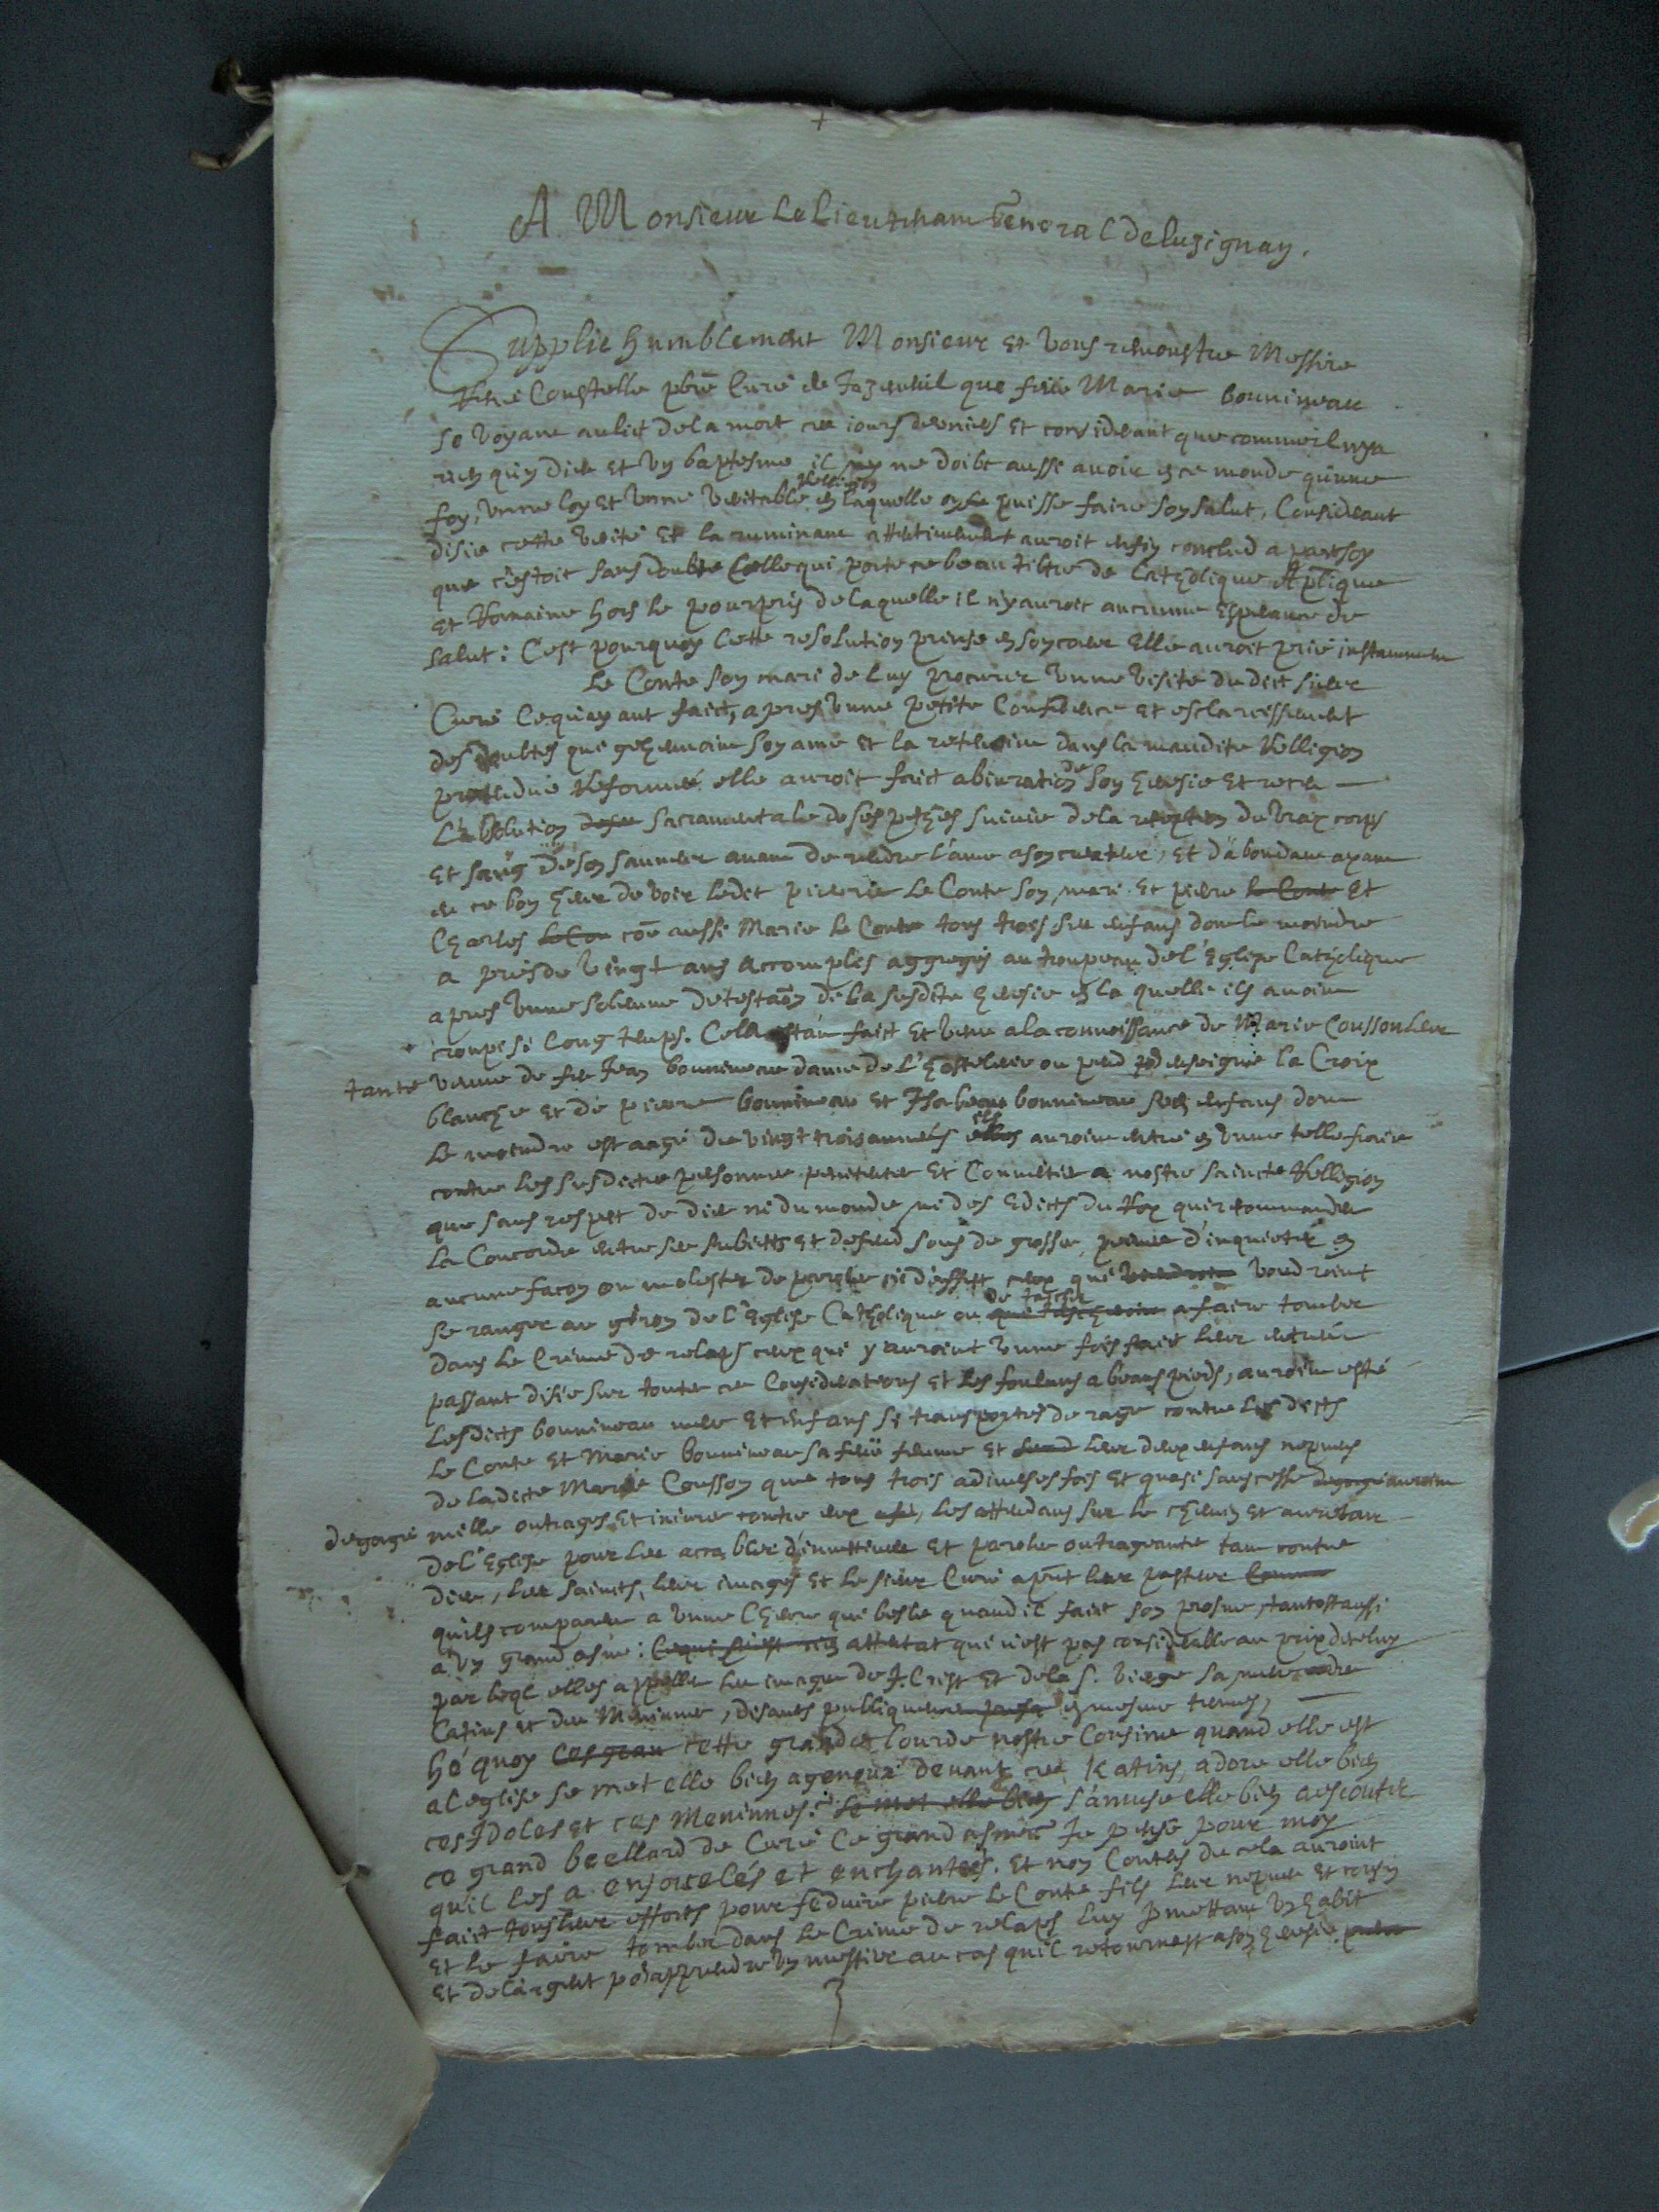 A Monsieur Le Lieutenant General de Luzignan.
Supplie humblement Monsieur et vous remonstre Messire
René Constelle pbre Curé de Jazenueil que feüe Marie bonnineau
se voyant au lict de la mort ces iours derniers et considerant que comme il nya
rien qu'un dieu et un baptesme il ne doibt aussi auoir en ce monde qu'une
foy, vnne loy et vnne veritable Relligion en laquelle on puisse faire son salut, Considerant
disie cette verité et la ruminant attentiuement auroit enfin conclud a part soy
que c'estoit sans doubte Celle qui porte ce beau tiltre de Catholique Aplique
et Romaine hors le pourpris de laquelle il n'y auroit aucunne Esperance de
salut: C'est pourquoy Cette resolution prinse en son coeur Elle auroit prié instamment
Le Conte son mari de luy procurer vnne visite du dict sieur
Curé Ce qu'ayant faict, apres vnne petite Conference et esclarcissement
des doubtes qui gehennoint son ame et la retenoint dans la maudite Relligion
pretendüe Reformée elle auroit faict abiuration de son heresie et receu
L'absolution sacramentale de ses pechés suiuie de la reception du vray corps
et sang de son sauueur auant de rendre l'ame a son createur, et d'abondant ayant
eu ce bon heur de voir ledit pierre Le Conte son mari et pierre le Conte et
Charles Le Con coe aussi Marie le Conte tous trois ses enfans dont le moindre
a pres de vingt ans accomplis aggregés au troupeau de l'Eglise Catholique
apres vnne solenne detestaon de la susdite heresie en laquelle ils auoint
croupi si long temps. Cela estant faict et venu a la connoissance de Marie Cousson leur
tante veuue de feu Jean bonnineau dame de l'hostelerie ou pend pr enseigne la Croix
blanche et de pierre bonnineau et Isabeau bonnineau ses enfans dont
le moindre est aagé de vingt trois années ils elles auroint entré en vnne telle furie
contre les susdictes personnes penitentes et Conuerties a nostre saincte Relligion
que sans respect de dieu ni du monde ni des Edicts du Roy qui recommandent
la Concorde entre ses subiects et defend sous de grosses peines d'inquieter en
aucune facon ou molester de parolle ni d'effect ceux qui voudroint
se ranger au giron de l'Eglise Catholique ou de tascher a faire tomber
dans le Crime de relaps ceux qui y auroint vnne fois fait leur entrée
passant disie sur toutes ces Considerations et les foulans a beaux pieds, auroint esté
Lesdicts bonnineau mere et enfans si transportés de rage contre lesdicts
le Conte et Marie bonnineau sa feüe femme et leur deux enfans nepueus
de ladicte Marie Cousson que tous trois a diuerses fois et quasi sans cesse auroint
degorgé mille outrages et iniures contre eux, les attendans sur le chemin et au retour
de l'Eglise pour les accabler d'inuectiues et paroles outrageantes tant contre
dieu, les saincts, leur images et le sieur Curé apnt leur pasteur
quils comparent a vnne Cheure qui besle quand il faict son prosne, tantost aussi
a vn grand asne: Ce qui n'est rien attentat qui n'est pas considerable au prix de celuy
par leql elles appellent les images de J. Crist et de la S. vierge sa mere
Catins et des Meninnes, disants publiquement en mesmes termes,
hé quoy Ces gran cette grande lourde nostre Cousine quand elle est
a l'eglise se met elle bien a genoux deuant ces Katins, adore elle bien
ces Idoles et ces Meninnes: se met elle bien s'amuse elle bien a escouter
ce grand beellard de Curé Ce grand asnier Je pense pour moy
qu'il les a ensorcelés et enchantés. Et non Contens de cela auroint
faict tous leur efforts pour seduire pierre Le Conte fils leur nepueu et cousin
et le faire tomber dans le Crime de relaps luy pmettant vn habit
et de largent pr apprendre vn mestier au cas qu'il retournast a son heresie.